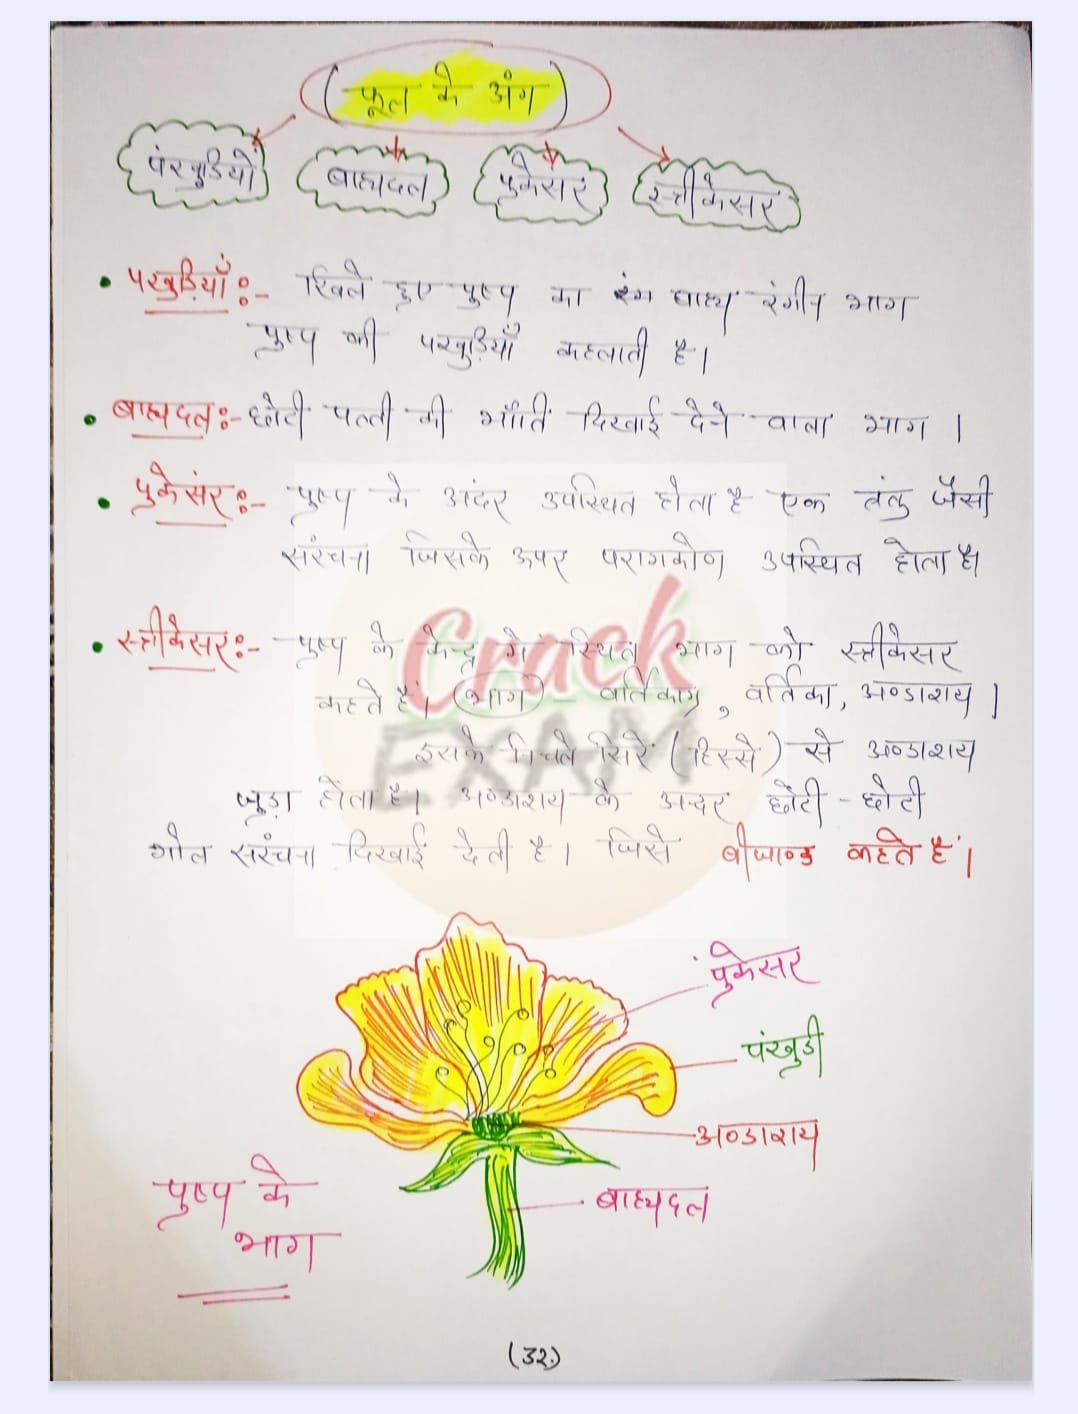 (फूल के अंग)
पंखुडियों
बाह्यदल
पुंकेसर
स्त्रीकेसर
• पखुड़ियाँ:- खिले हुए पुष्प का रंग बाह्य रंगीन भाग
पुष्प की पखुड़ियाँ कहलाती है।
• बाह्यदल:- छोटी पत्ती की भाँति दिखाई देने वाला भाग ।
• पुकेसंर:- पुष्प के अंदर उपस्थित होता है एक तंतु जैसी
संरचना जिसके ऊपर परागकोण उपस्थित होता है।
• स्त्रीकेसर:- पुष्प के केन्द्र में स्थित भाग को स्त्रीकेसर
कहते हैं। (भाग) - वर्तिकाग्र, वर्तिका, अण्डाशय ।
Crack
EXAM
इसके निचले सिरे (हिस्से) से अण्डाशय
जुड़ा होता है। अण्डाशय के अन्दर छोटी - छोटी
गोल संरचना दिखाई देती है। जिसे बीजाण्ड कहते हैं।
पुंकेसर
पंखुडी
अण्डाशय
बाह्यदल
पुष्प के
भाग
(32)